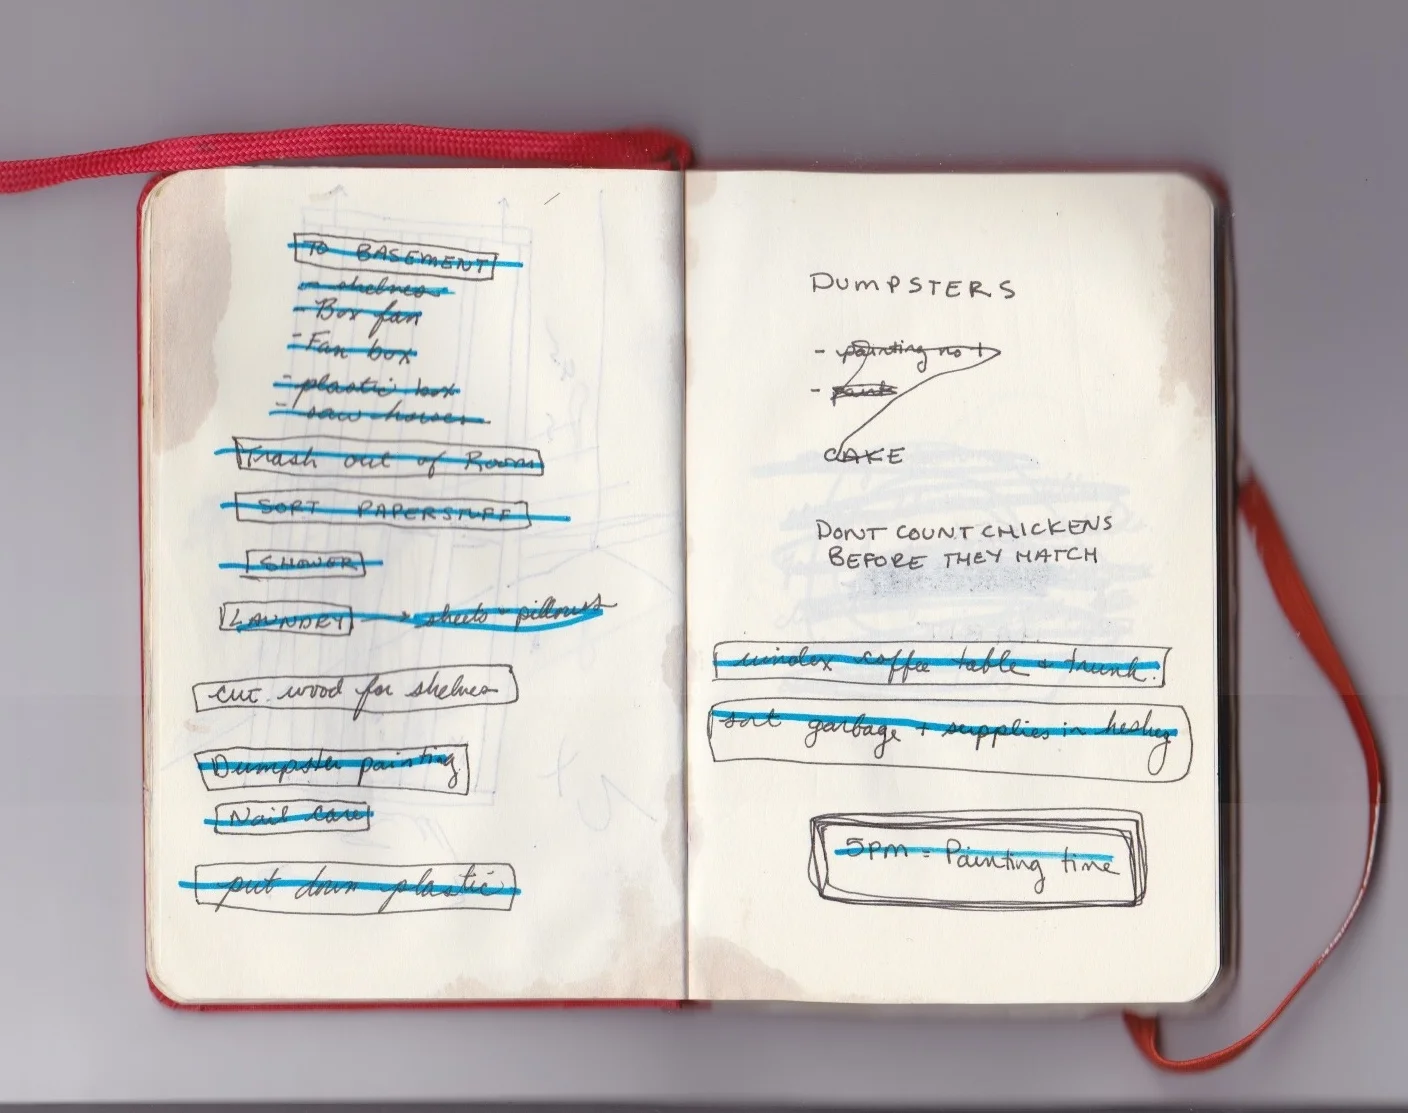 TO BASEMENT
- shelves
- Box fan
- Fan box
- plastic box
- saw horses
Trash out of Room
SORT PAPERSTUFF
SHOWER
LAUNDRY → sheets + pillows
cut wood for shelves
Dumpster painting
Nail care
put down plastic
DUMPSTERS
- painting no 1
-
CAKE
DONT COUNT CHICKENS
BEFORE THEY HATCH
windex coffee table + trunk.
sort garbage + supplies in
5pm = Painting time